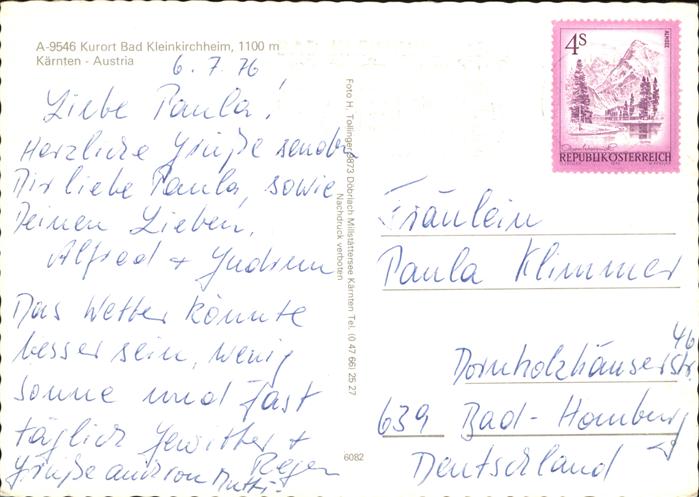 A-9546 Kurort Bad Kleinkirchheim, 1100 m
Kärnten - Austria
6.7.76
Liebe Paula!
Herzliche Grüße senden
Dir liebe Paula, sowie
Deinen Lieben,
Alfred + Gudrun
Das Wetter könnte
besser sein, wenig
Sonne und fast
täglich Gewitter +
Regen
Grüße auch von Mutti
Foto H. Tollinger 9873 Döbriach Millstättersee Kärnten Tel. (0 47 66) 25 27
Nachdruck verboten
6082
4 S
ALMSEE
REPUBLIK ÖSTERREICH
Fräulein
Paula Klimmer
Dornholzhäuserstr.
46
639 Bad-Homburg
Deutschland